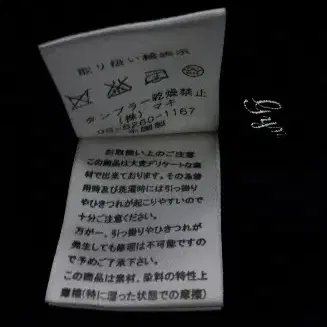 取り扱い絵表示
タンブラー乾燥禁止
(株) マキ
06-6260-1167
中国製
お取扱い上のご注意
この商品は大変デリケートな素
材で出来ております。その為着
用時及び洗濯時には引っ掛り
やひきつれが起こりやすいので
十分ご注意ください。
万が一、引っ掛りやひきつれが
発生しても修理は不可能ですの
で予めご了承下さい。
この商品は素材、染料の特性上
摩擦(特に湿った状態での摩擦)